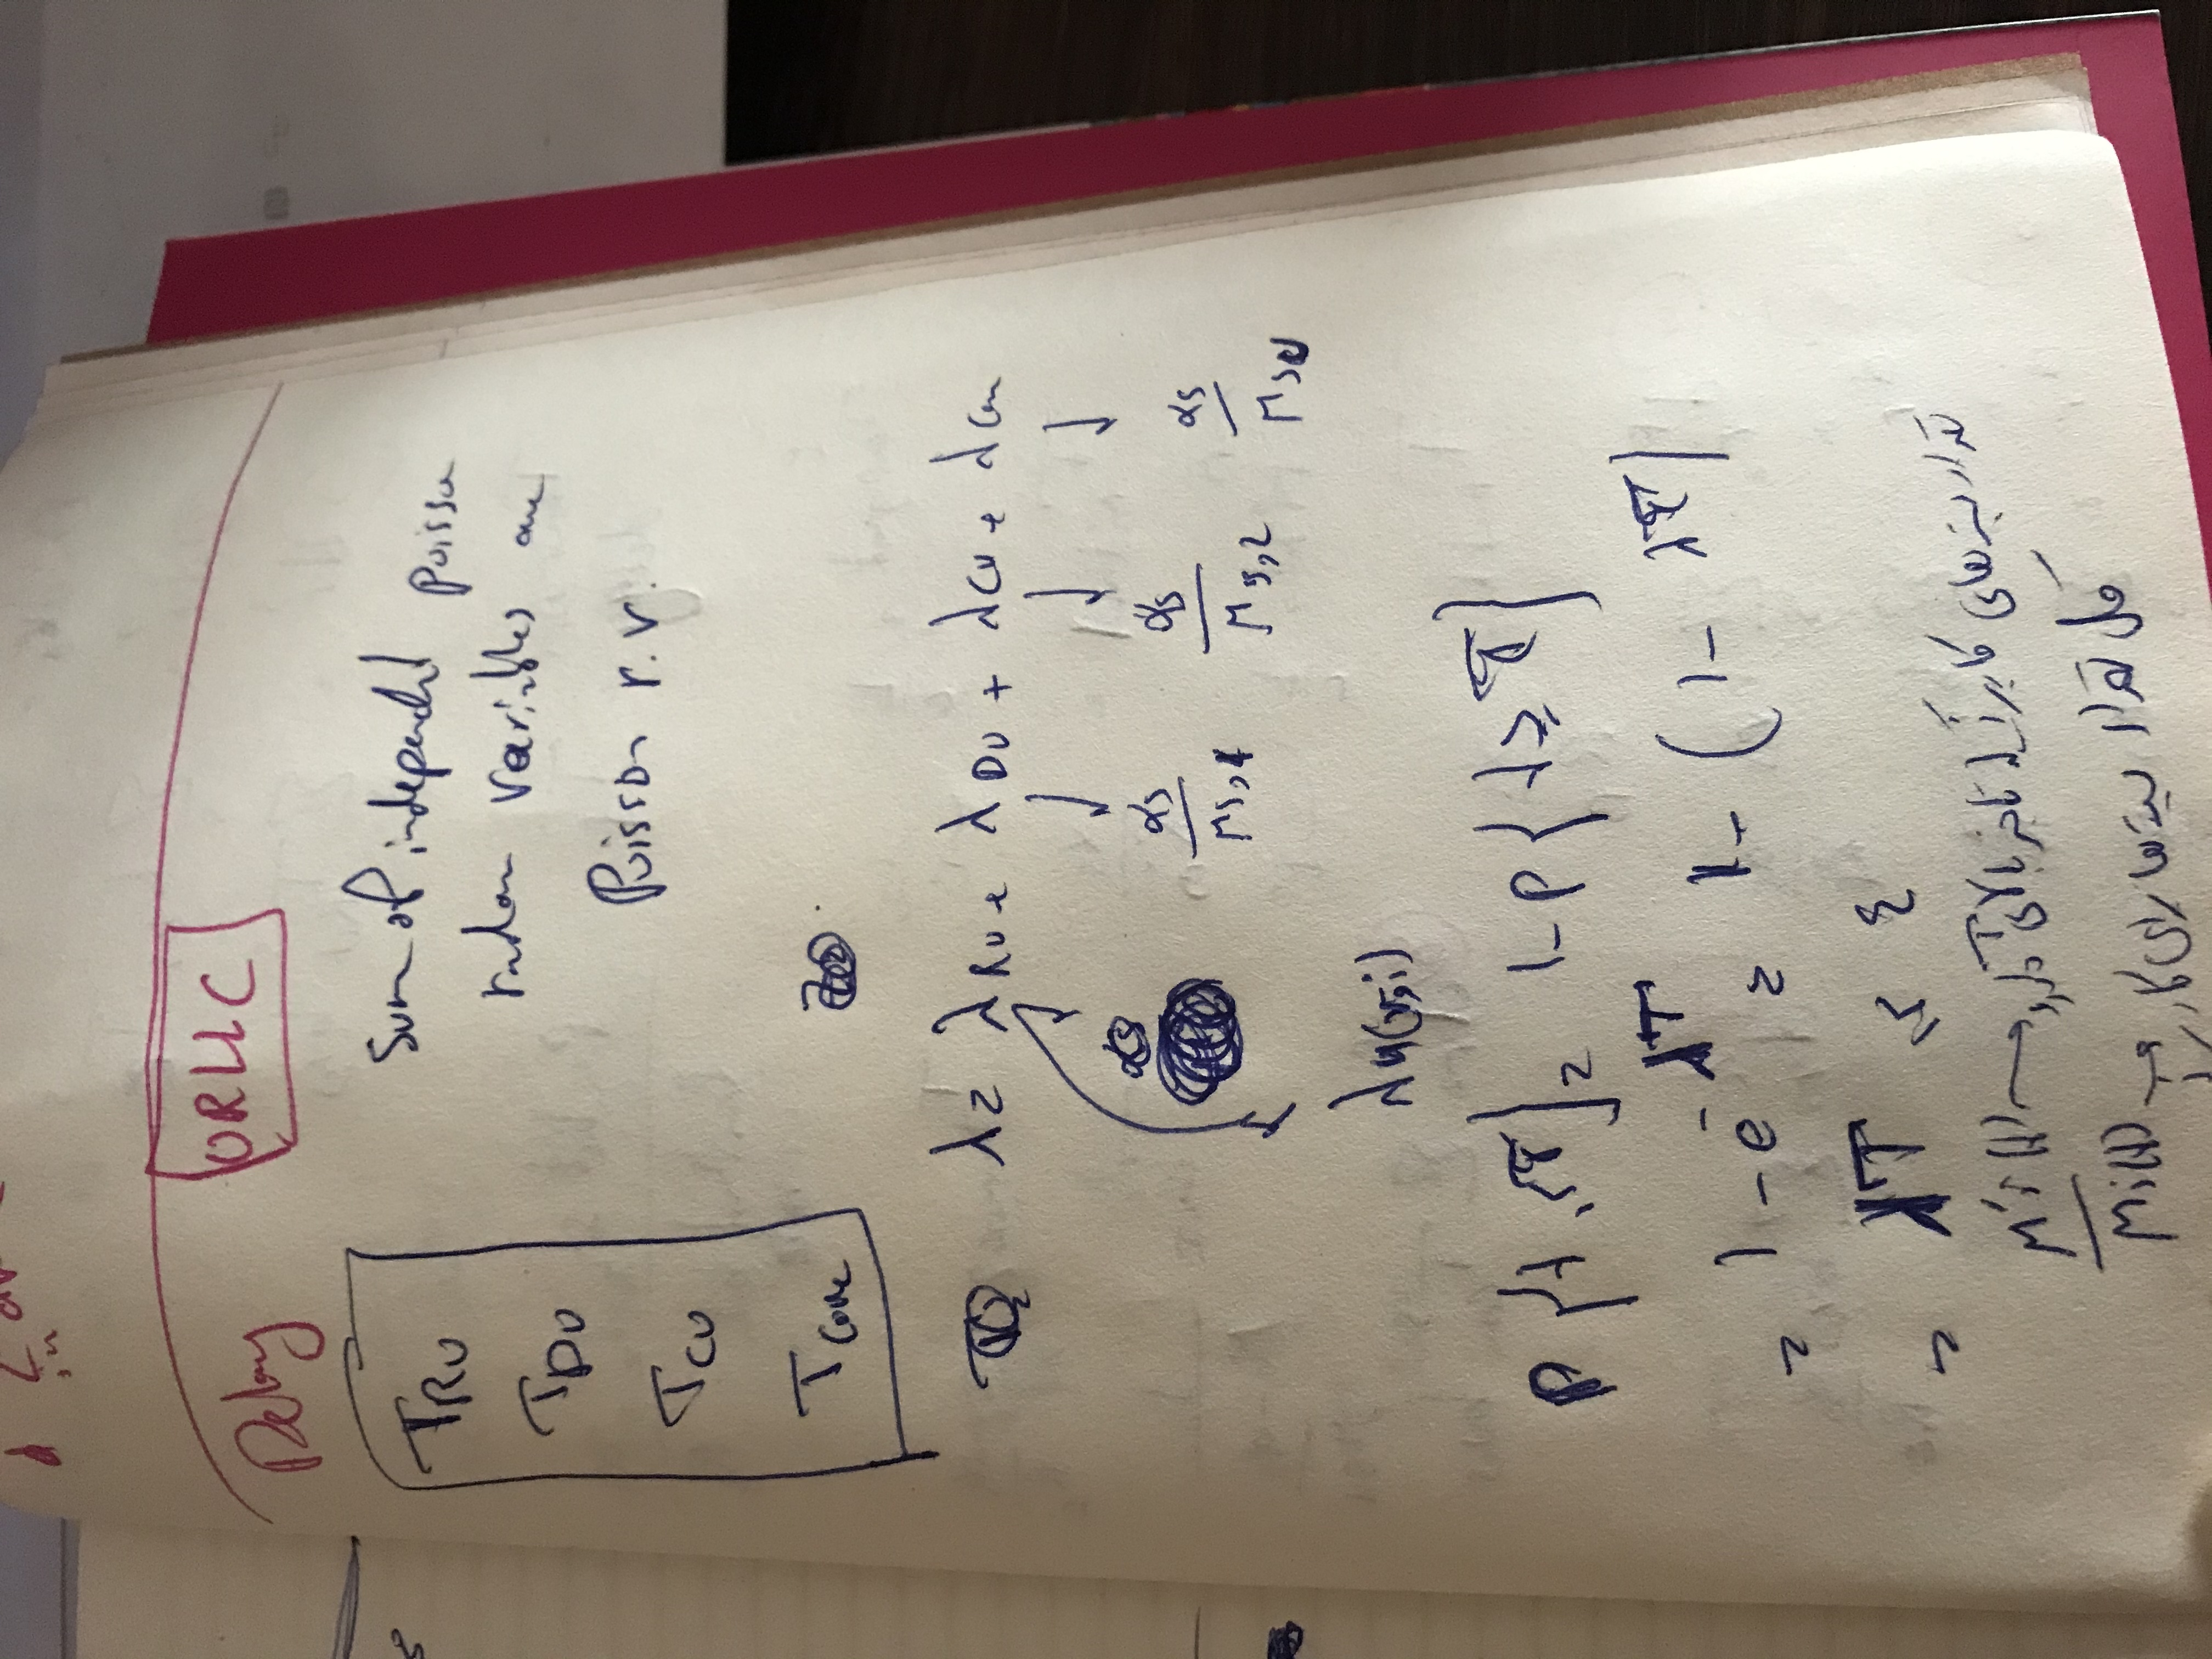 Delay URLLC
T_RU
T_DU
T_CU
T_Core
Sum of independent poisson
random variables are
Poisson r.v.
λ = λ_RU + λ_DU + λ_CU + λ_Core
α_s/M_s,1 α_s/M_s,2 α_s/M_s
λ_u(v,i)
P{t ≤ T} = 1-P{t ≥ T}
= 1 - e^-λT = 1-(1-λT)
= λT ≤ ε
M'i(t) → تعداد بسته‌های کاربر که تاخیر بالای T دارد
Mi(t) → کل تعداد بسته‌ها برای کاربر